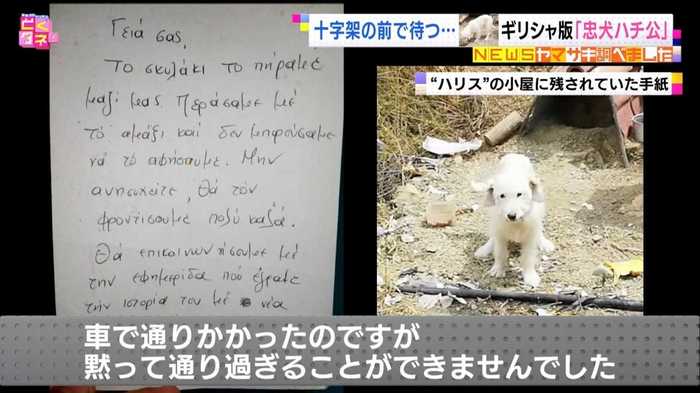 とくダネ!
十字架の前で待つ…
ギリシャ版「忠犬ハチ公」
NEWSヤマサキ調べました
“ハリス”の小屋に残されていた手紙
Γειά σας,
Το σκυλάκι το πήραμε
μαζί μας. Περάσαμε με
το αμάξι και δεν μπορούσαμε
να το αφήσουμε. Μην
ανησυχείτε, θα τον
φροντίσουμε πολύ καλά.
Θα επικοινωνήσουμε με
την εφημερίδα που έγραψε
την ιστορία του με νέα
車で通りかかったのですが
黙って通り過ぎることができませんでした